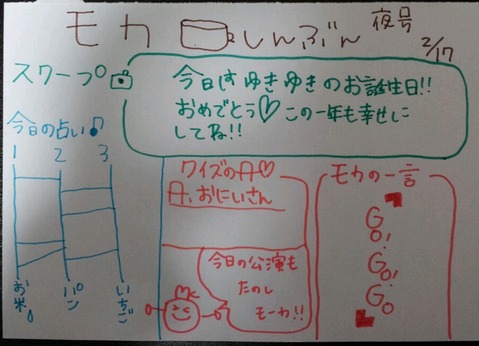 モカしんぶん 夜号
2/17
スクープ
今日はゆきゆきのお誕生日!!
おめでとう♡この一年も幸せに
してね!!
今日の占い♪
1 2 3
お米 パン いちご
クイズの丹♡
丹、おにいさん
今日の公演も
たのし
モーカ!!
モカの一言
「
Go!
Go!
Go
」